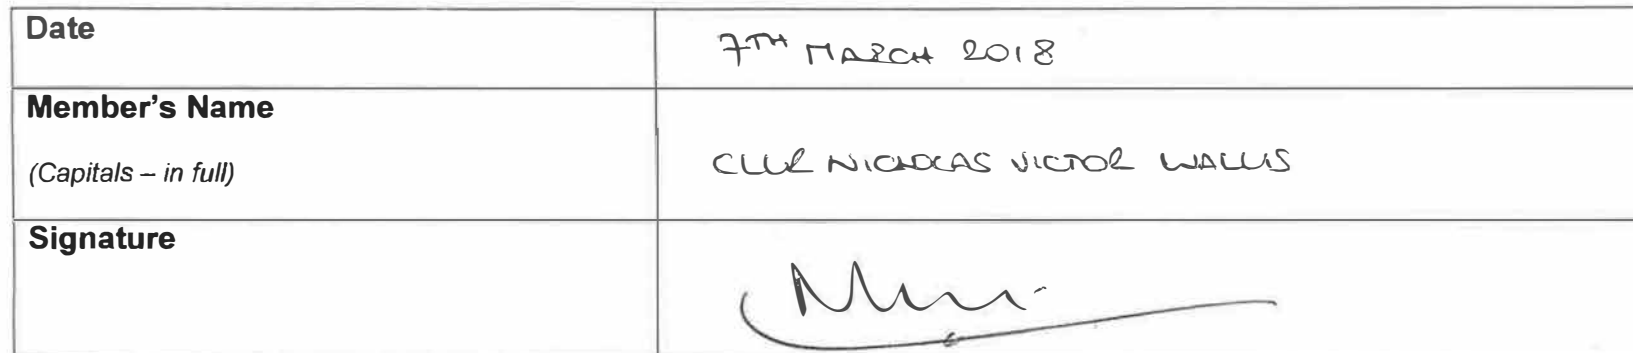 Date
7TH MARCH 2018
Member's Name
(Capitals – in full)
CLLR NICHOLAS VICTOR WALLIS
Signature